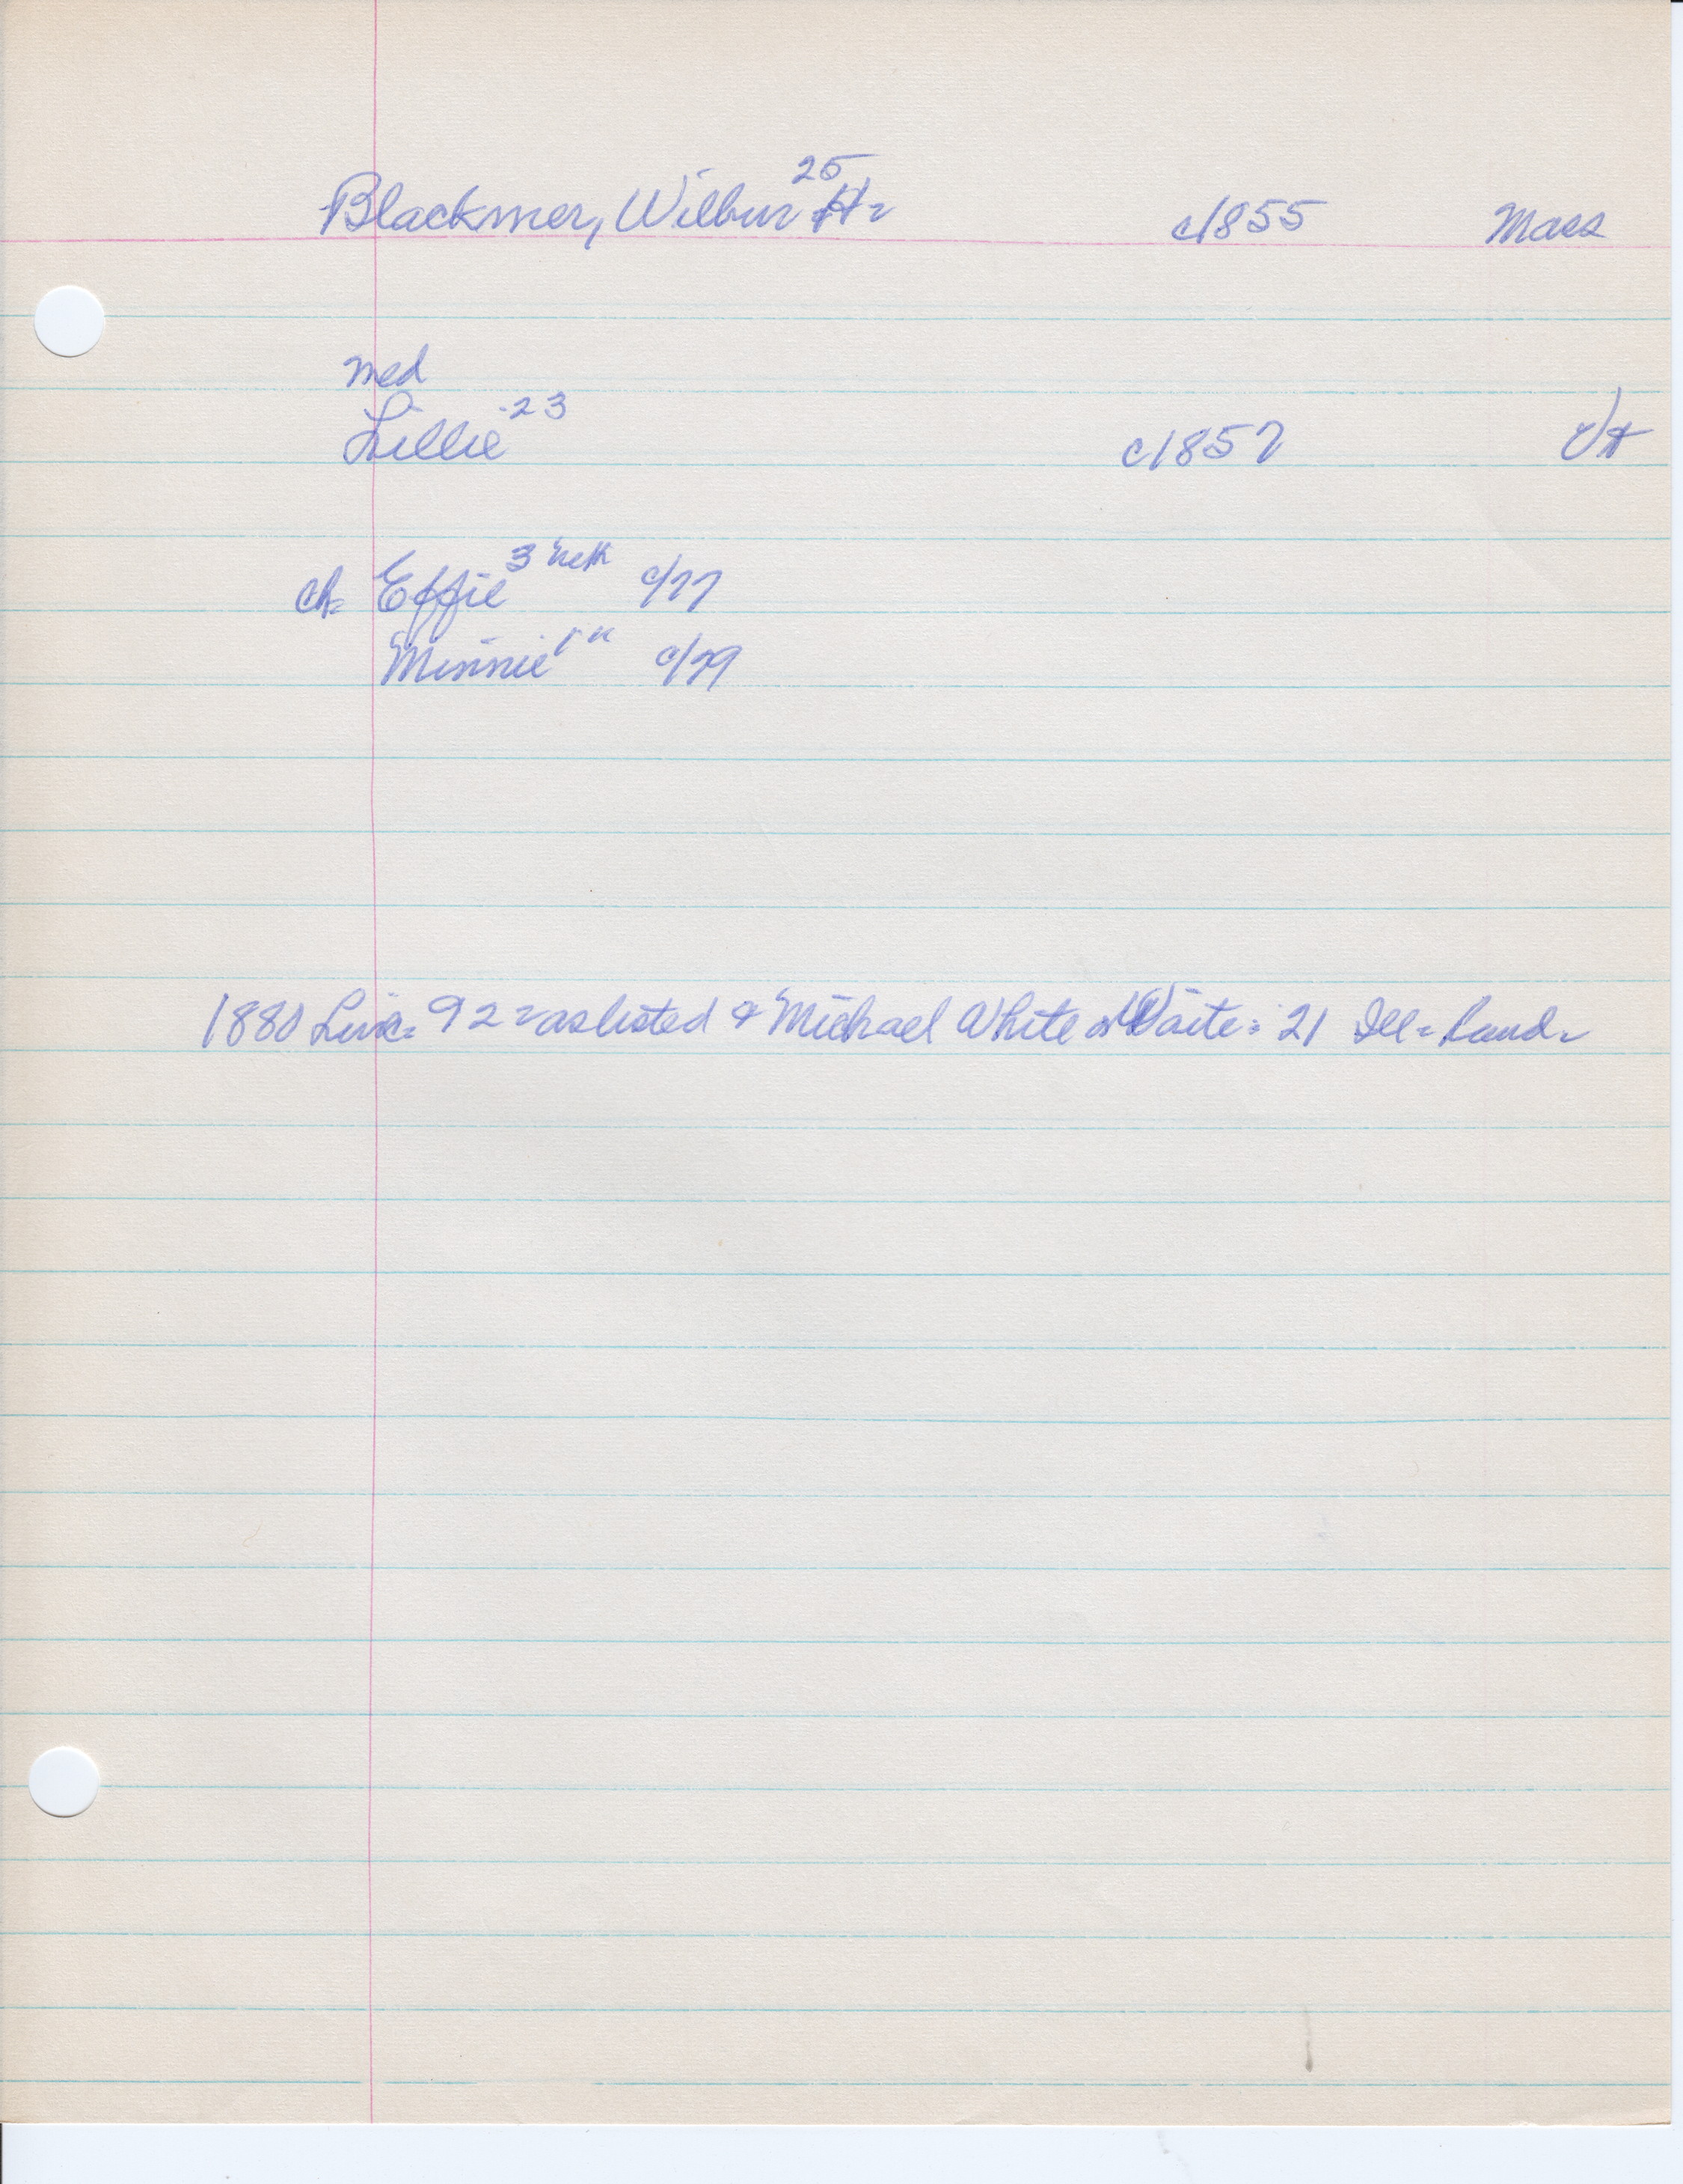 Blackmer, Wilbur H= 25 c1855 Mass
med
Lillie 23 c1857 Vt
ch= Effie 3 Neth c/77
Minnie 1 " c/79
1880 Linc= 92= as listed & Michael White or Waite= 21 Ill= hand=